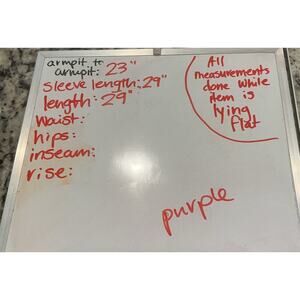 armpit to
armpit: 23"
sleeve length: 29"
length: 29"
waist:
hips:
inseam:
rise:
All
measurements
done while
item is
lying
flat
purple